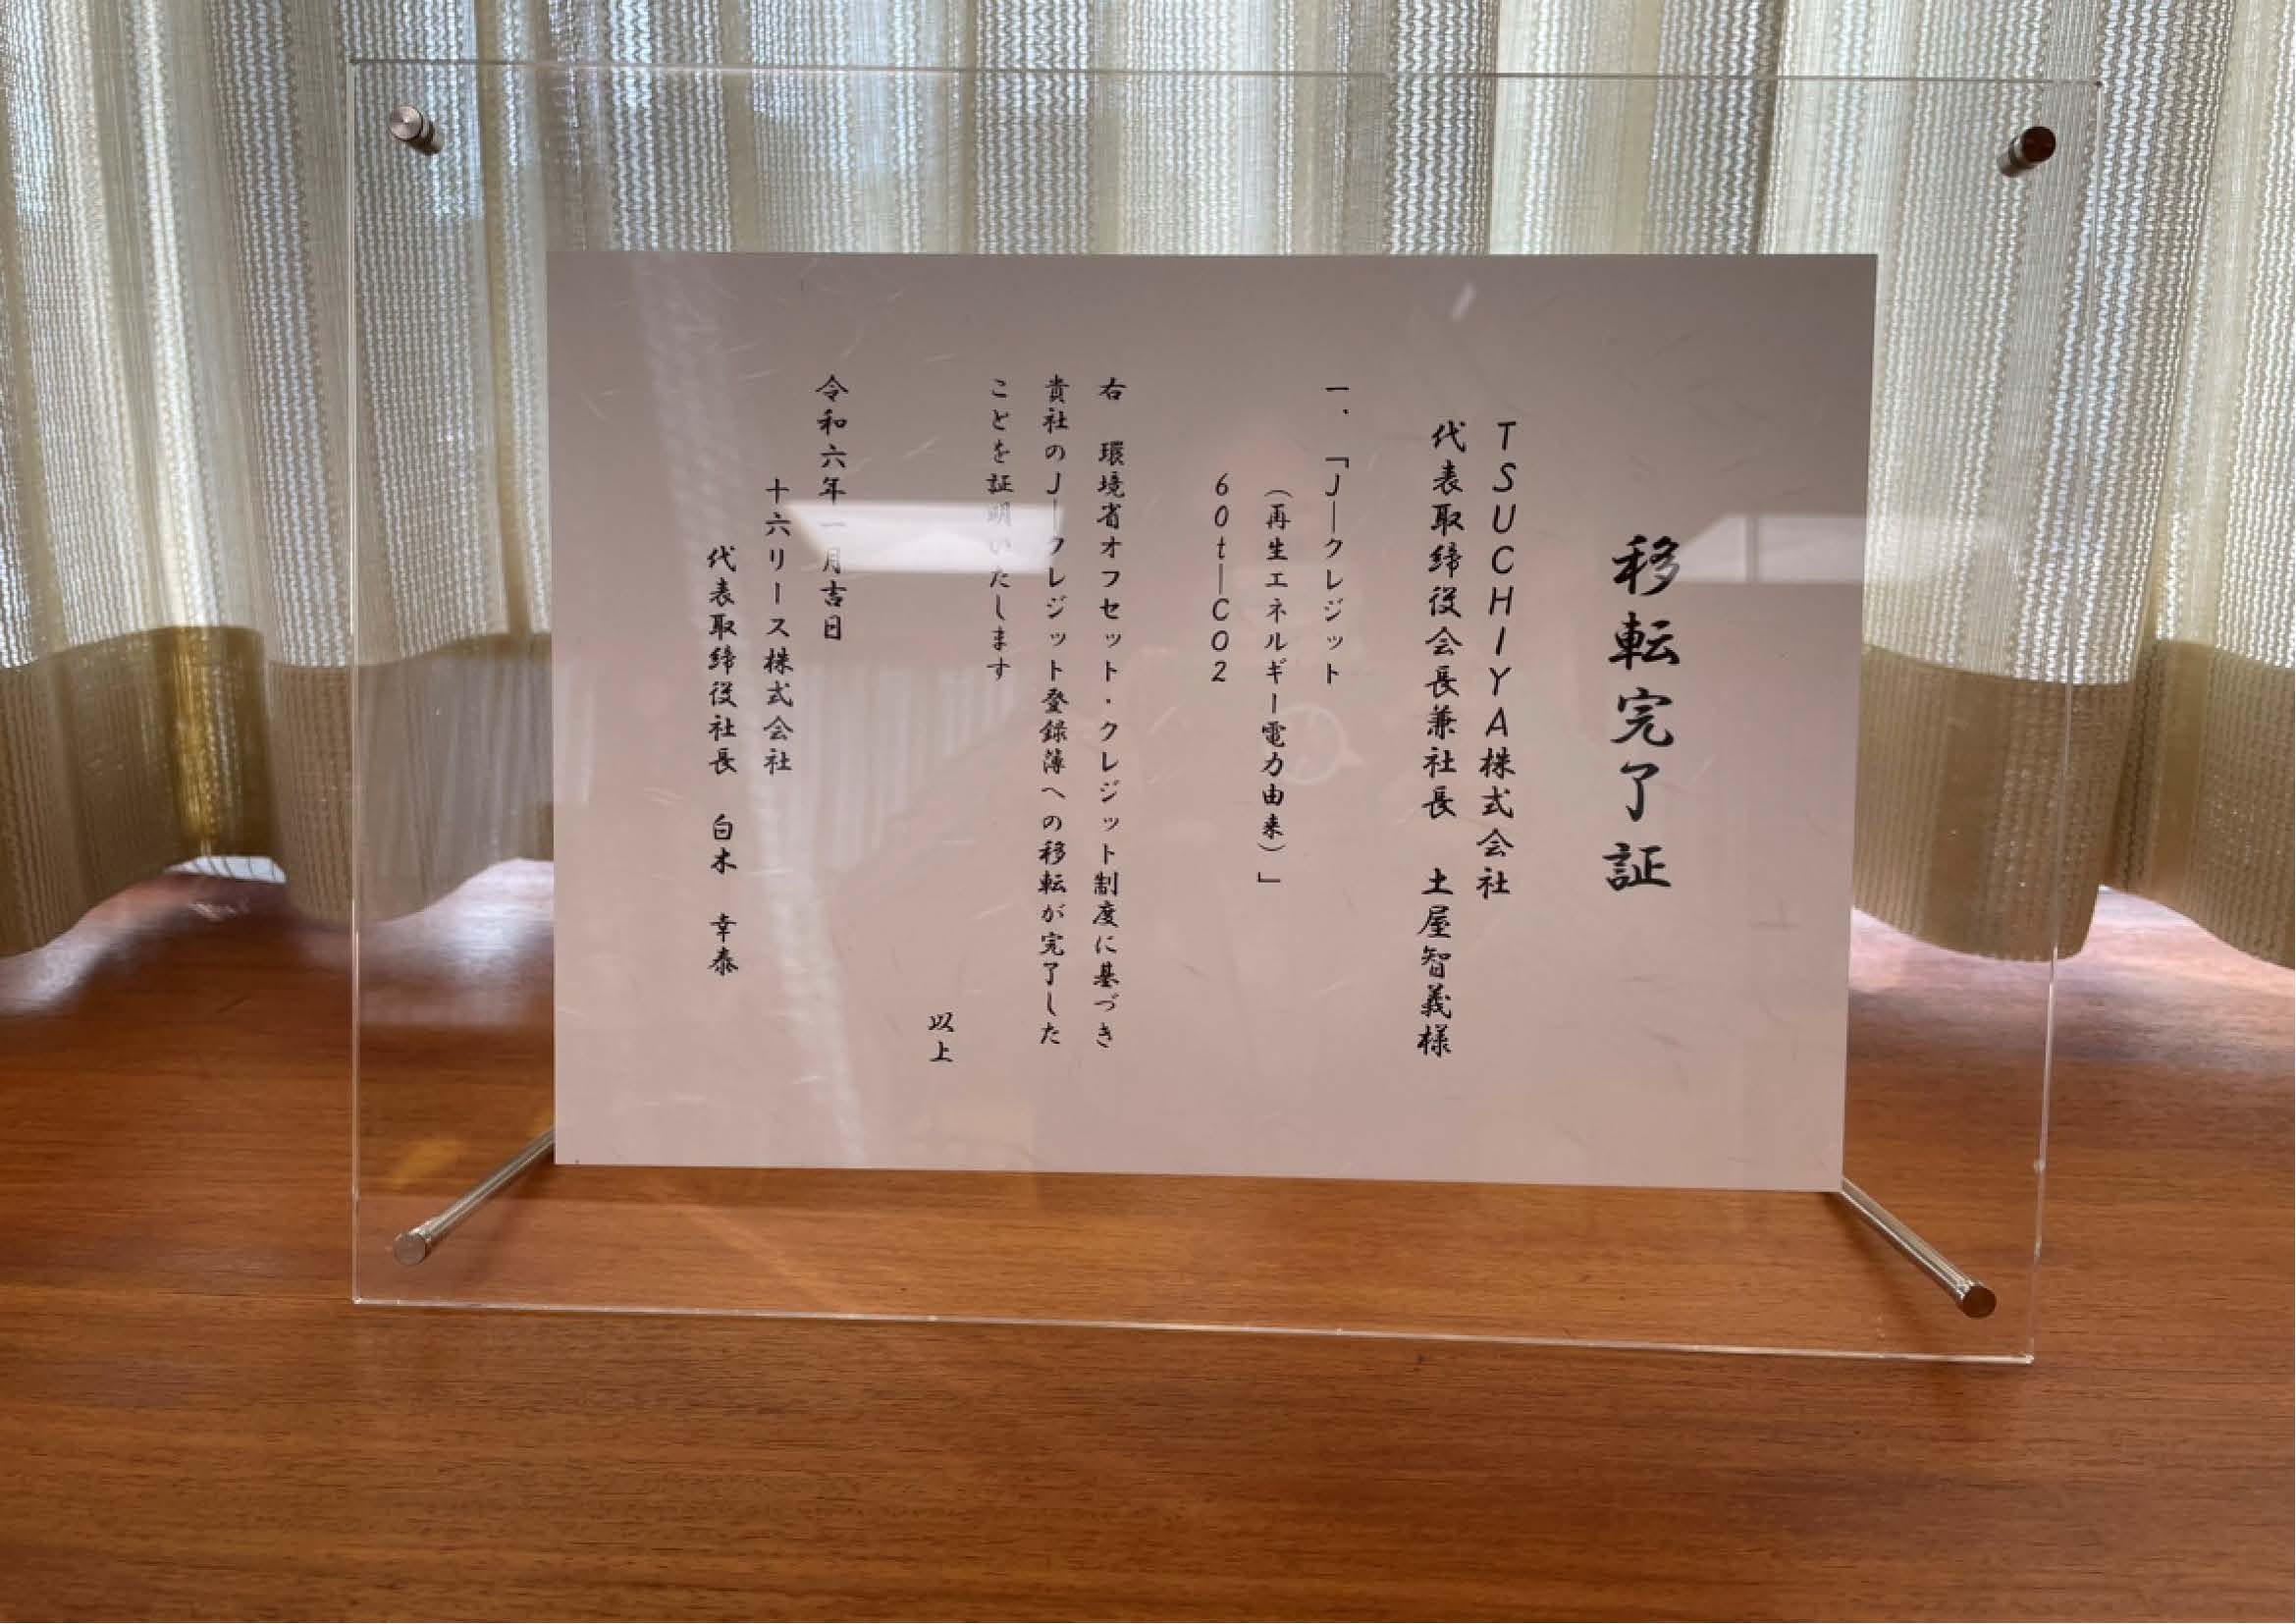 移転完了証
TSUCHIYA株式会社
代表取締役会長兼社長　土屋智義様
一．「J―クレジット
（再生エネルギー電力由来）」
60t―CO2
右　環境省オフセット・クレジット制度に基づき
貴社のJ―クレジット登録簿への移転が完了した
ことを証明いたします
以上
令和六年一月吉日
十六リース株式会社
代表取締役社長　白木　幸泰